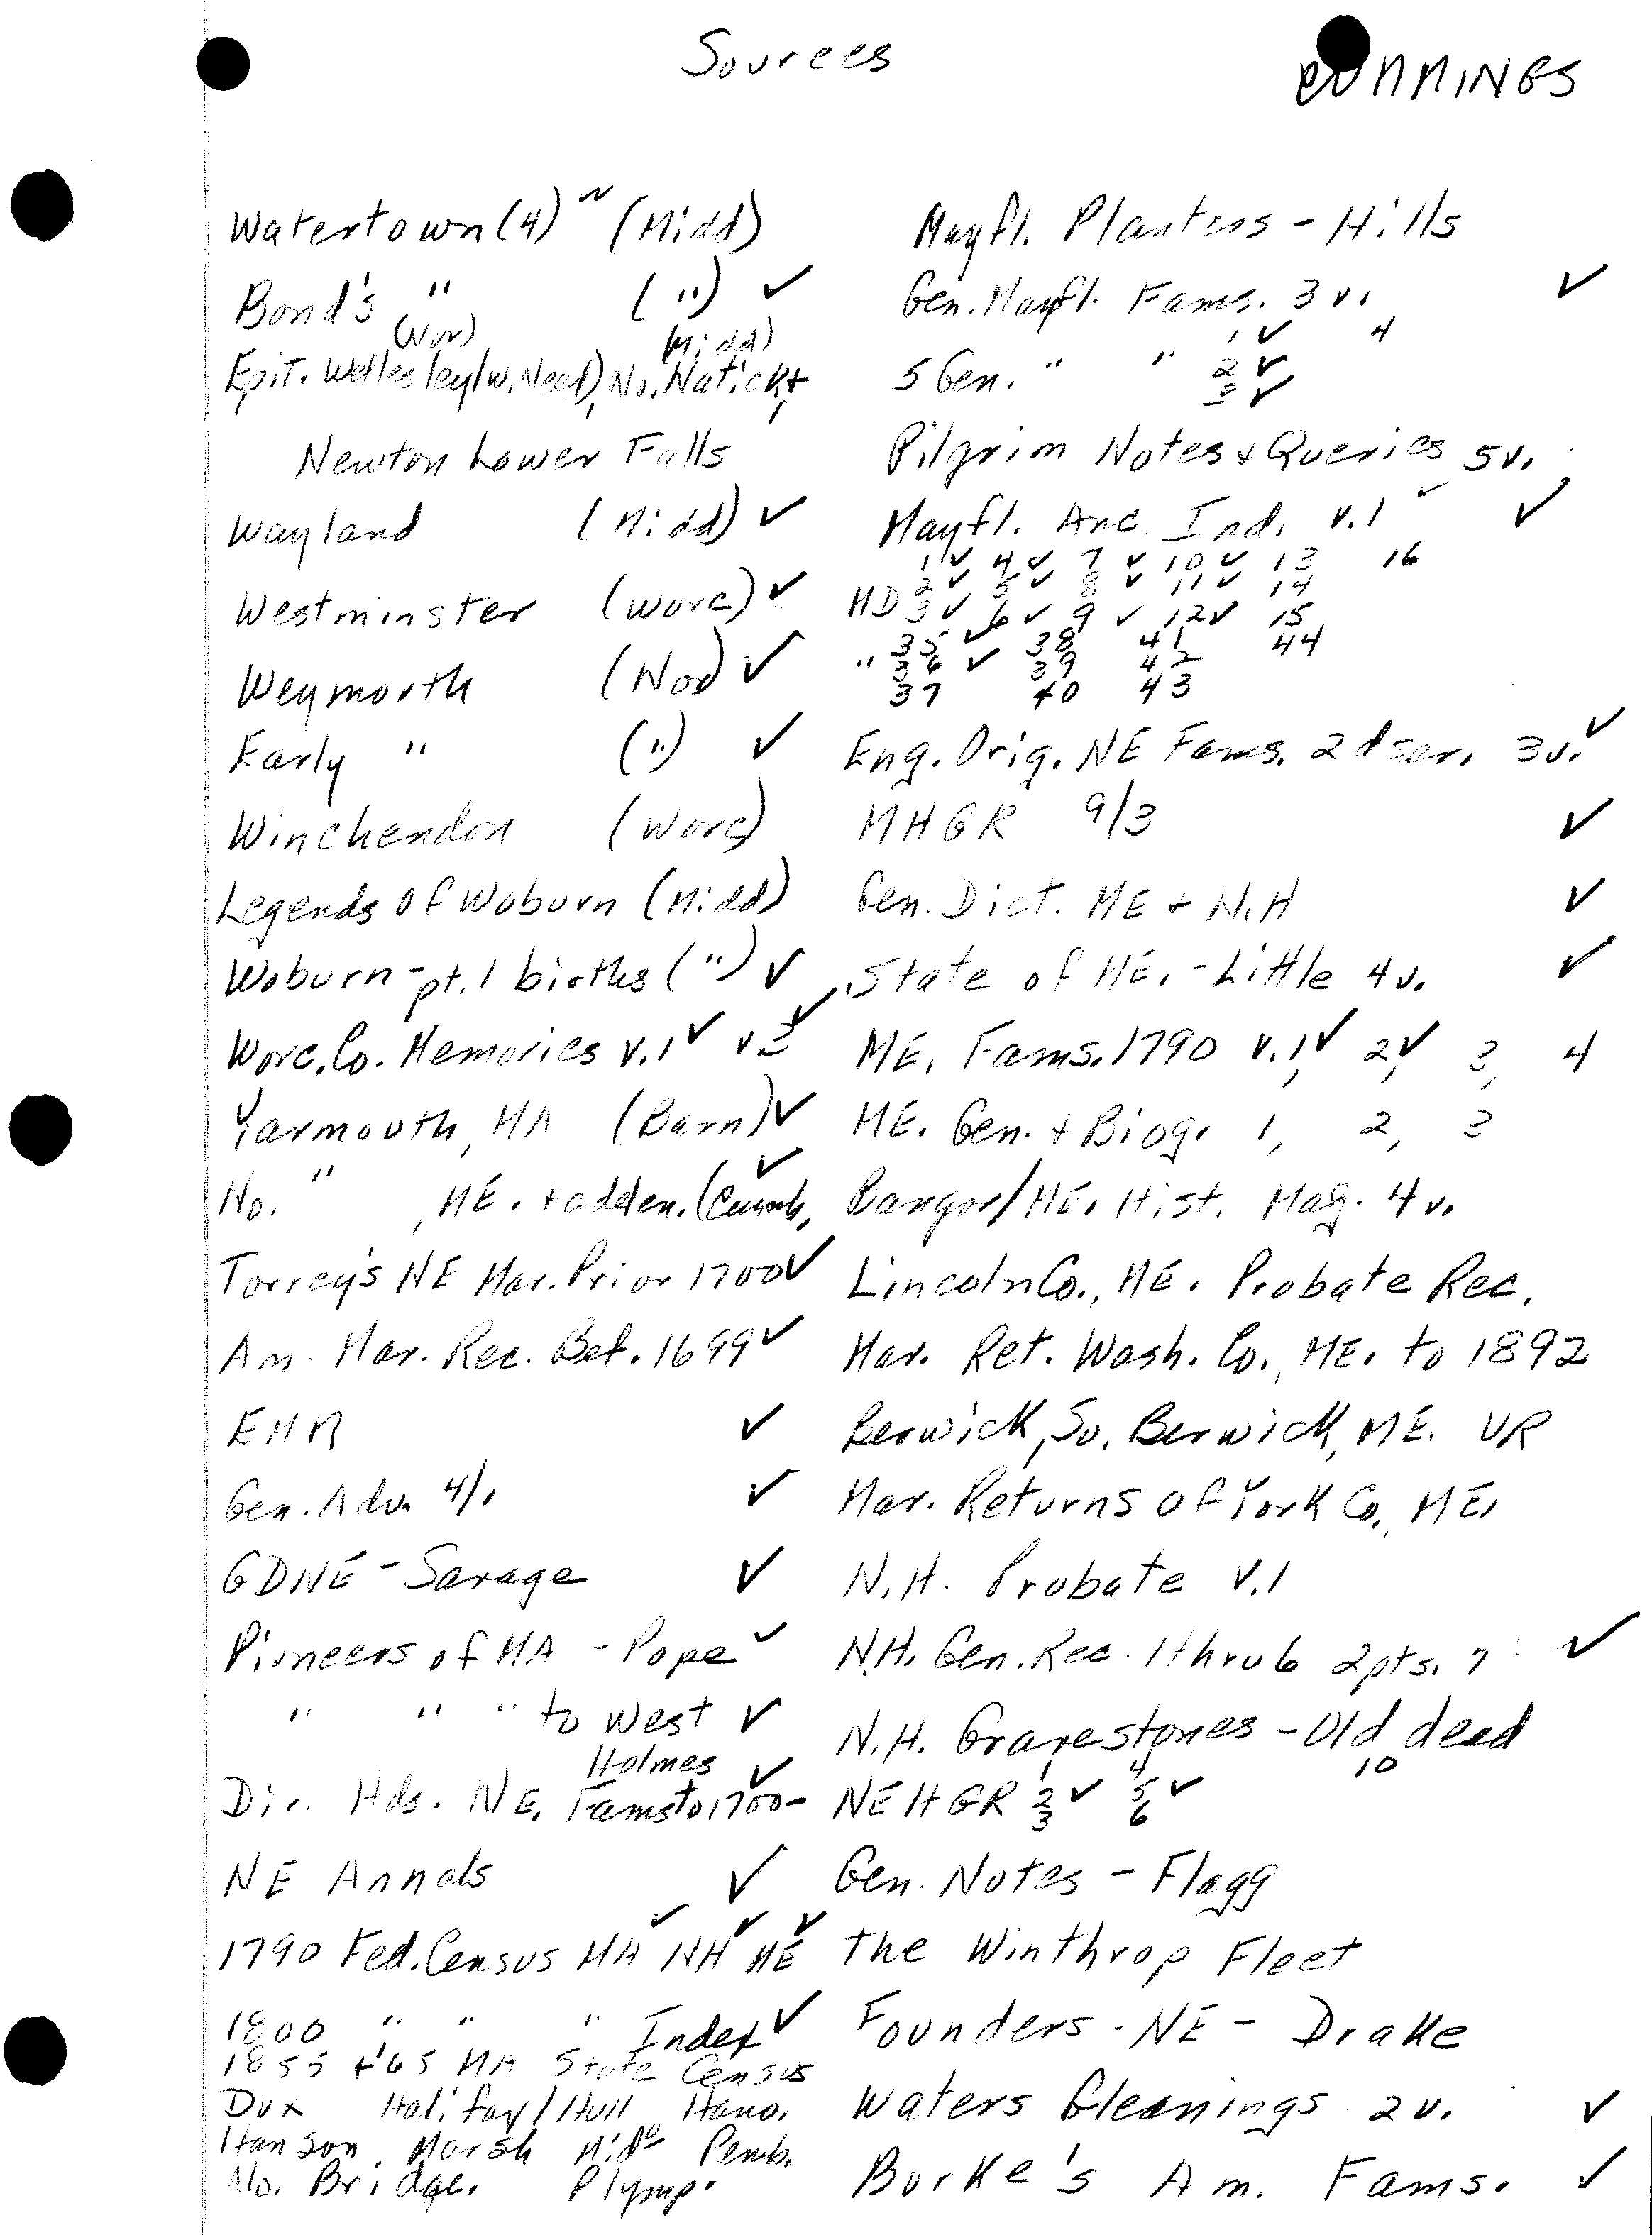 Sources
CUMMINGS
Watertown (4) ~ (Midd)
Bond's " (") ✓
(Nor) (Midd)
Epit. Wellesley (w. Need), No. Natick, +
Newton Lower Falls
Wayland (Midd) ✓
Westminster (Worc) ✓
Weymouth (Nor) ✓
Early " (") ✓
Winchendon (Worc)
Legends of Woburn (Midd)
Woburn - pt. 1 births (") ✓
Worc. Co. Memories v. 1 ✓ v 2 ✓
Yarmouth, MA (Barn) ✓
No. " , ME. + adden. (Cumb. ✓
Torrey's NE Mar. Prior 1700 ✓
Am. Mar. Rec. Bef. 1699 ✓
EHM ✓
Gen. Adv. 4/1 ✓
GDNE - Savage ✓
Pioneers of MA - Pope ✓
" " " to West ✓
Holmes ✓
Dir. Hds. NE. Fams to 1700 -
NE Annals ✓
1790 Fed. Census MA ✓ NH ✓ ME ✓
1800 " " " Index ✓
1855 + '65 MA State Census
Dux Halifax / Hull Hano.
Hanson Marsh Mid Pemb.
No. Bridge. Plymp.
Mayfl. Planters - Hills
Gen. Mayfl. Fams. 3 v. ✓
1 ✓ 4
5 Gen. " " 2 ✓
3 ✓
Pilgrim Notes + Queries 5 v.
Mayfl. Anc. Ind. v. 1 ✓
1 ✓ 4 ✓ 7 ✓ 10 ✓ 13 16
2 ✓ 5 ✓ 8 ✓ 11 ✓ 14
MD 3 ✓ 6 ✓ 9 ✓ 12 ✓ 15
35 ✓ 38 41 44
" 36 ✓ 39 42
37 40 43
Eng. Orig. NE Fams. 2d ser. 3 v. ✓
MHGR 9/3 ✓
Gen. Dict. ME + N.H ✓
State of ME. - Little 4 v. ✓
ME. Fams. 1790 v. 1 ✓, 2 ✓, 3, 4
ME. Gen. + Biog. 1, 2, 3
Bangor/ME. Hist. Mag. 4 v.
Lincoln Co., ME. Probate Rec.
Mar. Ret. Wash. Co., ME. to 1892
Berwick, So. Berwick, ME. VR
Mar. Returns of York Co., ME.
N.H. Probate v. 1
N.H. Gen. Rec. 1 thru 6 2 pts. 7 ✓
N.H. Gravestones - Old dead
1 4 10
NEHGR 2 ✓ 5 ✓
3 6
Gen. Notes - Flagg
The Winthrop Fleet
Founders - NE - Drake
Waters Gleanings 2 v. ✓
Burke's Am. Fams. ✓